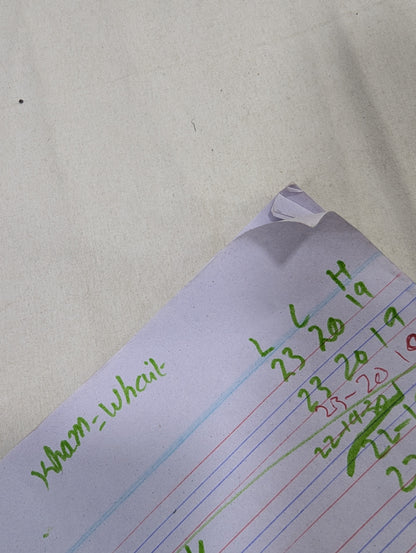 Kham = Whait
L L H
23 20 19
23 20 19
23-20
22-19-20
22-1
22